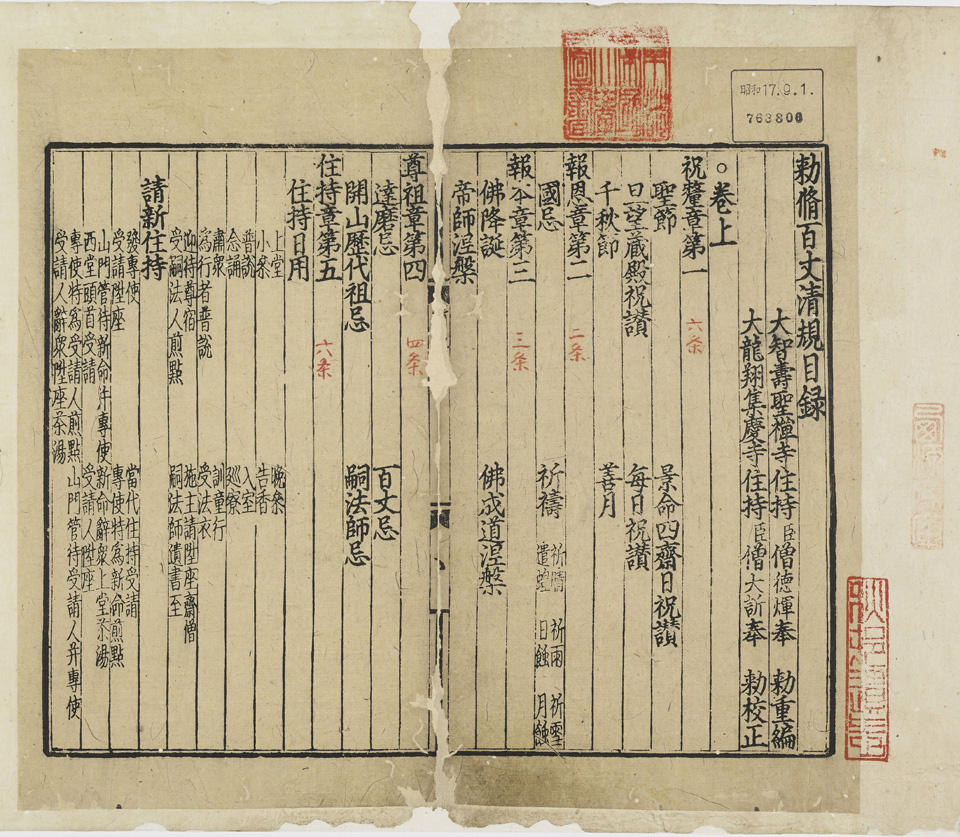 勅脩百丈清規目録
大智壽聖禪寺住持臣僧德煇奉 勅重編
大龍翔集慶寺住持臣僧大訢奉 勅校正
○卷上
祝釐章第一 六条
聖節 景命四齋日祝讃
旦望藏殿祝讃 每日祝讃
千秋節 善月
報恩章第二 二条
國忌 祈禱 祈晴 祈雨 祈雪 遣蝗 日蝕 月蝕
報本章第三 三条
佛降誕 佛成道涅槃
帝師涅槃
尊祖章第四 四条
達磨忌 百丈忌
開山歷代祖忌 嗣法師忌
住持章第五 六条
住持日用
上堂 晩參
小參 告香
普說 入室
念誦 巡寮
肅衆 訓童行
爲行者普說 受法衣
迎待尊宿 施主請陞座齋僧
受嗣法人煎點 嗣法師遺書至
請新住持
發專使 當代住持受請
受請陞座 專使特爲新命煎點
山門管待新命并專使 新命辭衆上堂茶湯
西堂頭首受請 受請人陞座
專使特爲受請人煎點 山門管待受請人并專使
受請人辭衆陞座茶湯
昭和17.9.1.
763806